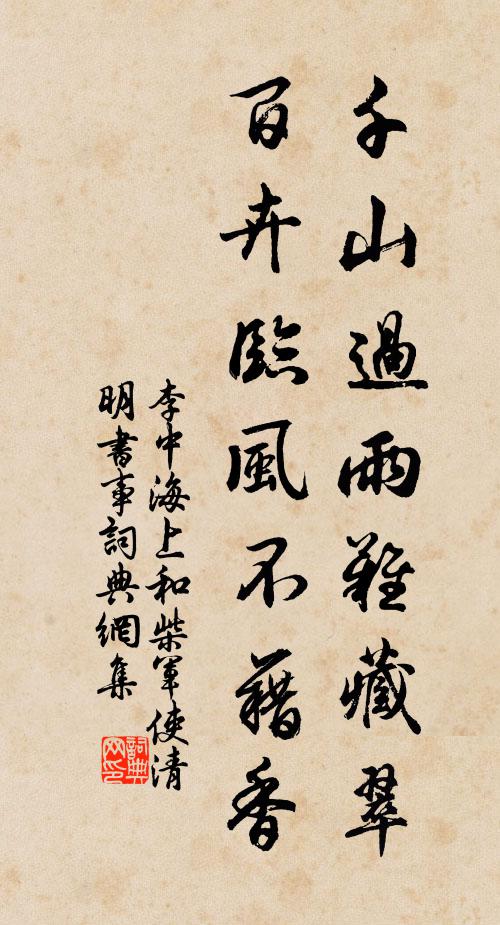 千山過雨難藏翠
百卉臨風不藉香
李中海上和柴軍使清
明書事詞典網集
詞典
网印